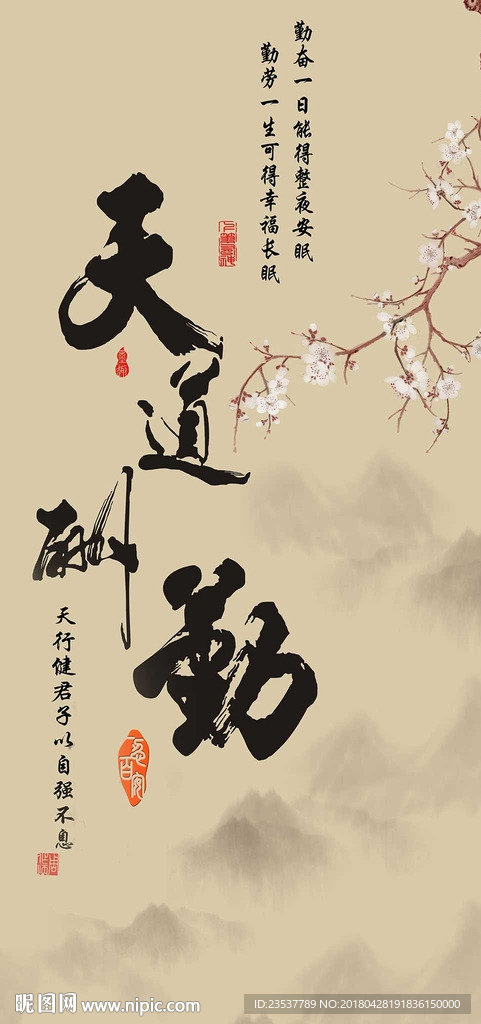 勤奋一日能得整夜安眠
勤劳一生可得幸福长眠
天道酬勤
天行健君子以自强不息
昵图网 www.nipic.com
ID:23537789 NO:20180428191836150000